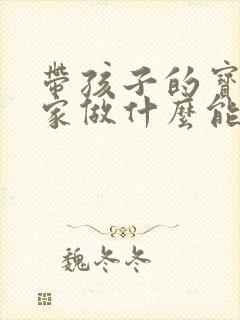 帶孩子的寶
家做什麼能
魏冬冬